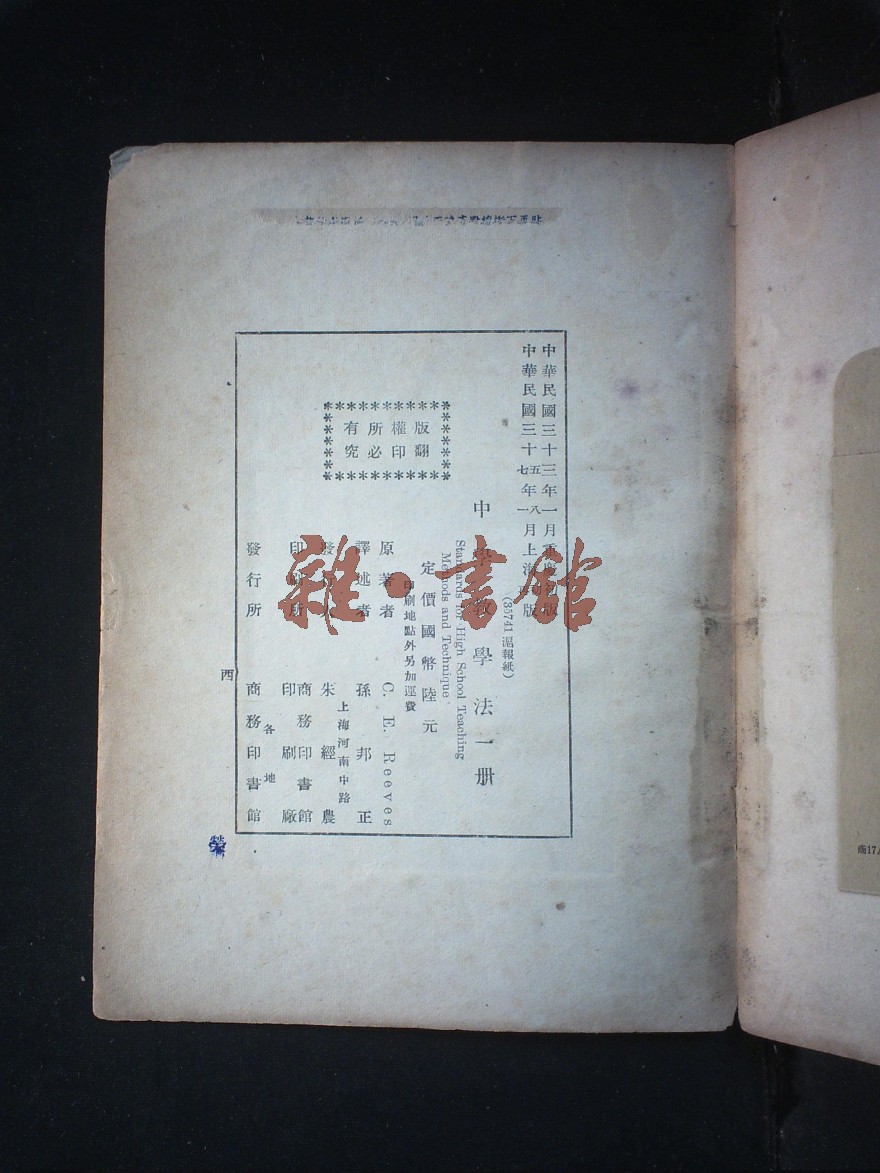 中華民國三十三年一月重慶初版
中華民國三十五年八月上海初版
七年一月
(35741滬報紙)
中學教學法一册
Standards for High School Teaching
Methods and Technique
定價國幣陸元
印刷地點外另加運費
版權所有
翻印必究
原著者 C. E. Reeves
譯述者 孫邦正
上海河南中路
發行人 朱經農
印刷所 商務印書館
印刷廠
各地
發行所 商務印書館
西
雜·書館
商17